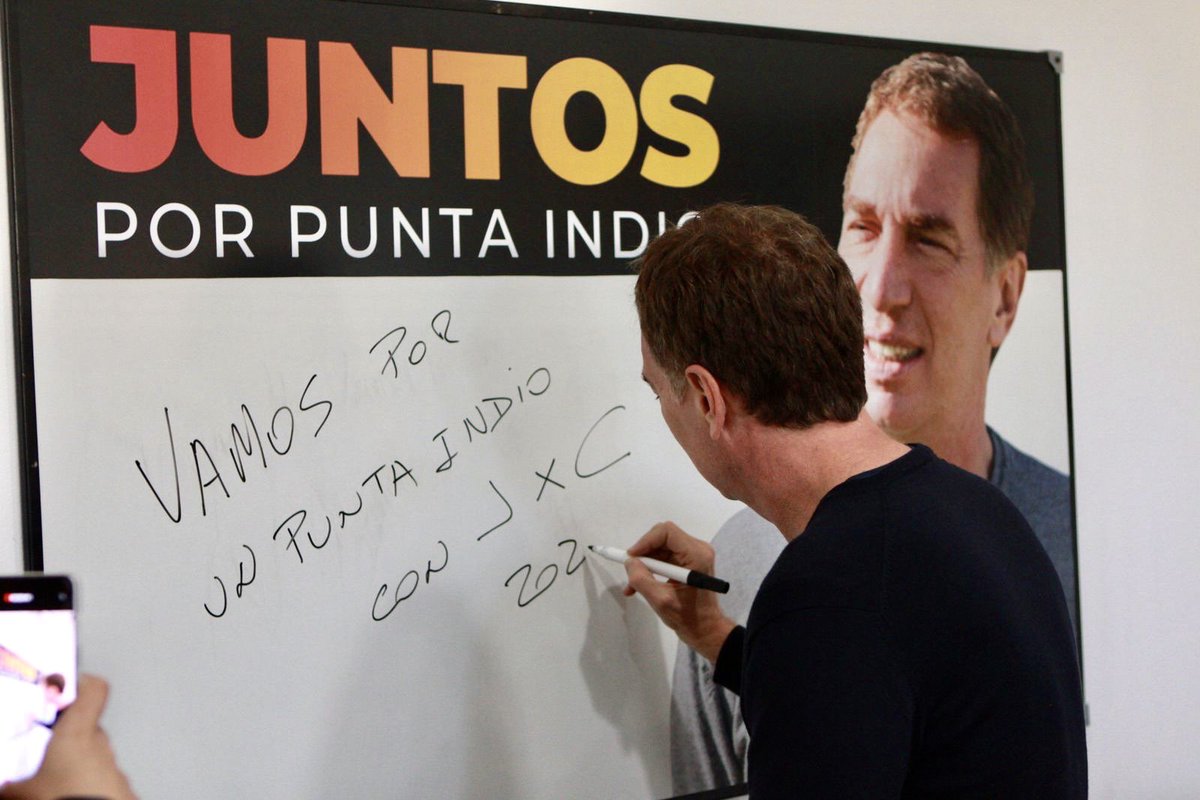 JUNTOS
POR PUNTA INDIO
VAMOS POR
UN PUNTA INDIO
CON J x C
202